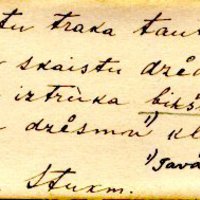 tu traka tau
skaistu dzēd
iztrūka bikš
dzėsmu 1) kl
1) Tava
Stuxm.